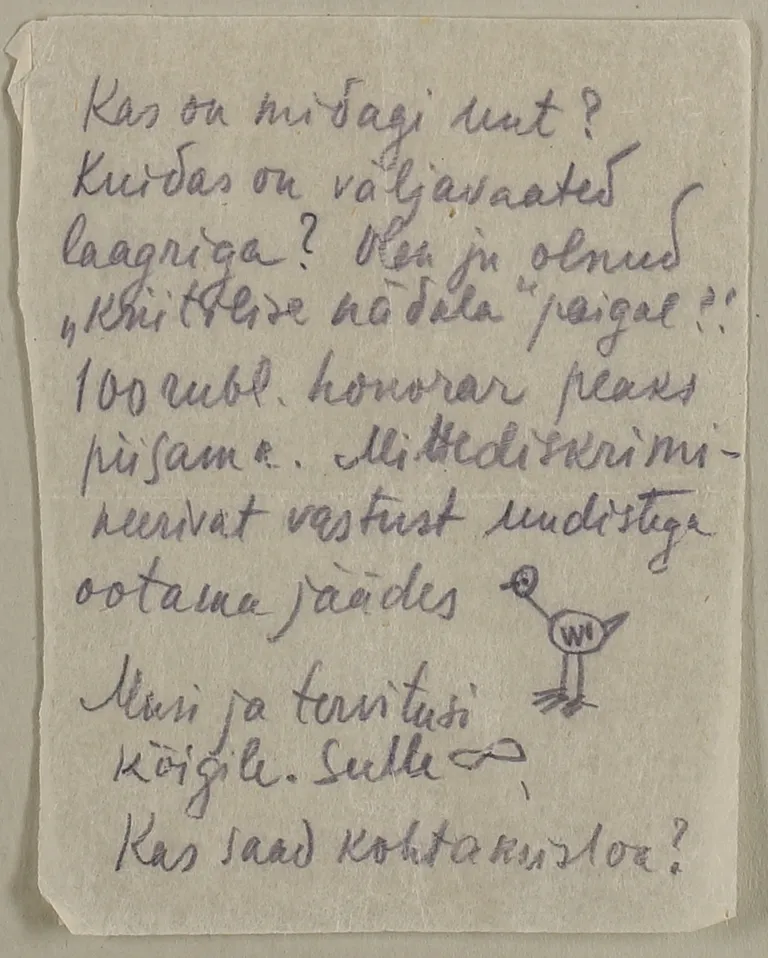 Kas on midagi uut?
Kuidas on väljavaated
laagriga? Olen ju olnud
„Kriitilise nädala" paigal?!
100 rubl. honorar peaks
piisama. Mittediskrimi-
neerivat vastust uudistega
ootama jäädes
Musi ja tervitusi
kõigile. Sulle ∞
Kas saad kohtamisloa?